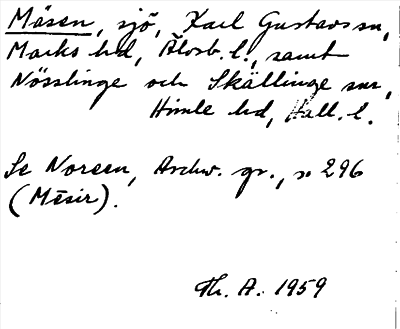 Mäsen, sjö, Karl Gustavs sn,
Marks hd, Älvsb. l., samt
Nösslinge och Skällinge snr,
Himle hd, Hall. l.
Se Noreen, Aschw. gr., s 296
(Mēsir).
Th. A. 1959